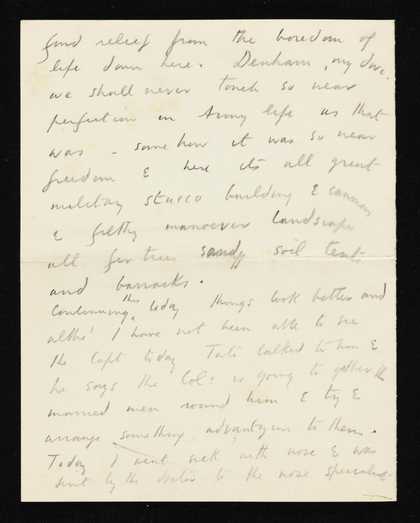 find relief from the boredom of
life down here. Denham, my dove,
we shall never touch so near
perfection in Army life as that
was – somehow it was so near
freedom & here its all great
military stucco building & cannons
& filthy manoever landscape
all fir trees sandy soil tents
and barracks.
Continuing this today things look better and
altho' I have not been able to see
the Capt today Tate talked to him &
he says the Col: is going to gather the
married men round him & try &
arrange something advantageous to them.
Today I went sick with nose & was
sent by the doctor to the nose specialist